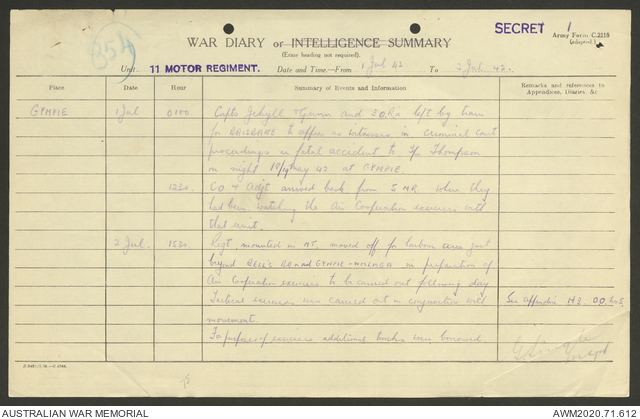 354
SECRET 1
WAR DIARY or INTELLIGENCE SUMMARY
Army Form C.2118
(adapted.)
(Erase heading not required).
Unit 11 MOTOR REGIMENT. Date and Time.—From 1 Jul 42 To 2 Jul 42.
Place. Day Hour Summary of Events and Information Remarks and references to
Appendices, Diaries, &c
GYMPIE 1 Jul 0100 Capts Jekyll & and left by train
for BRISBANE to appear as witnesses in criminal court
proceedings in fatal accident to Thompson
on night May 42 at GYMPIE.
CO & Adjt arrived back from 5 MR where they
had been watching the Air Cooperation exercises with
that unit.
2 Jul. Regt, mounted in MT, moved off for harbour area just
beyond BELL'S in preparation of
Air Cooperation exercise to be carried out following day
Tactical exercises were carried out in conjunction with See appendix
movement.
For purposes of exercises additional trucks were borrowed
AUSTRALIAN WAR MEMORIAL AWM2020.71.612